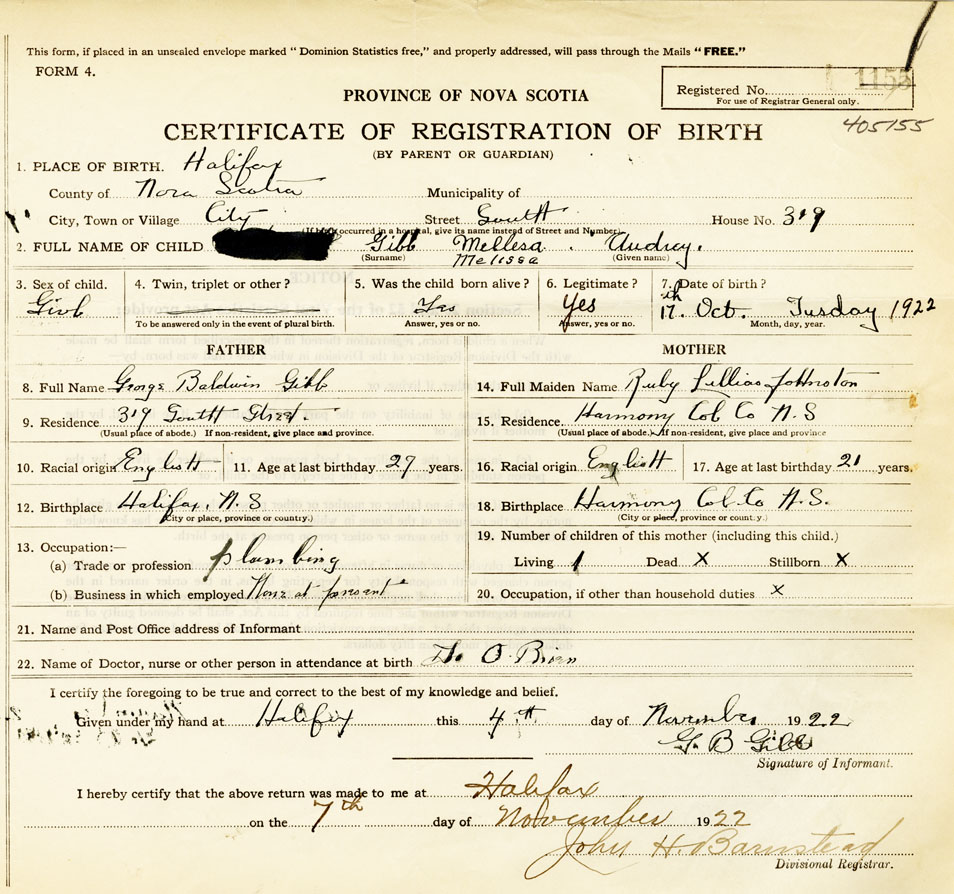 This form, if placed in an unsealed envelope marked "Dominion Statistics free," and properly addressed, will pass through the Mails "FREE."
FORM 4.
Registered No. 1155
For use of Registrar General only.
405155
PROVINCE OF NOVA SCOTIA
CERTIFICATE OF REGISTRATION OF BIRTH
(BY PARENT OR GUARDIAN)
1. PLACE OF BIRTH. Halifax
County of Nova Scotia Municipality of
City, Town or Village City Street South House No. 319
(If birth occurred in a hospital, give its name instead of Street and Number)
2. FULL NAME OF CHILD Gibb Mellesa Audrey.
(Surname) Melissa (Given name)
3. Sex of child. 4. Twin, triplet or other? 5. Was the child born alive? 6. Legitimate? 7. Date of birth?
Girl Yes Yes 17th Oct. Tusday 1922
To be answered only in the event of plural birth. Answer, yes or no. Answer, yes or no. Month, day, year.
FATHER MOTHER
8. Full Name George Baldwin Gibb 14. Full Maiden Name Ruby Lillias Johnston
9. Residence 319 South Street. 15. Residence Harmony Col. Co N.S
(Usual place of abode.) If non-resident, give place and province. (Usual place of abode.) If non-resident, give place and province
10. Racial origin English 11. Age at last birthday 27 years. 16. Racial origin English 17. Age at last birthday 21 years.
12. Birthplace Halifax, N.S 18. Birthplace Harmony Col. Co N.S.
(City or place, province or country.) (City or place, province or country.)
13. Occupation:— 19. Number of children of this mother (including this child.)
(a) Trade or profession plumbing Living 1 Dead X Stillborn X
(b) Business in which employed None at present 20. Occupation, if other than household duties X
21. Name and Post Office address of Informant
22. Name of Doctor, nurse or other person in attendance at birth O'Brien
I certify the foregoing to be true and correct to the best of my knowledge and belief.
Given under my hand at Halifax this 4th day of November 1922
G. B Gibb
Signature of Informant.
I hereby certify that the above return was made to me at Halifax
on the 7th day of November 1922
John H. Barnstead
Divisional Registrar.